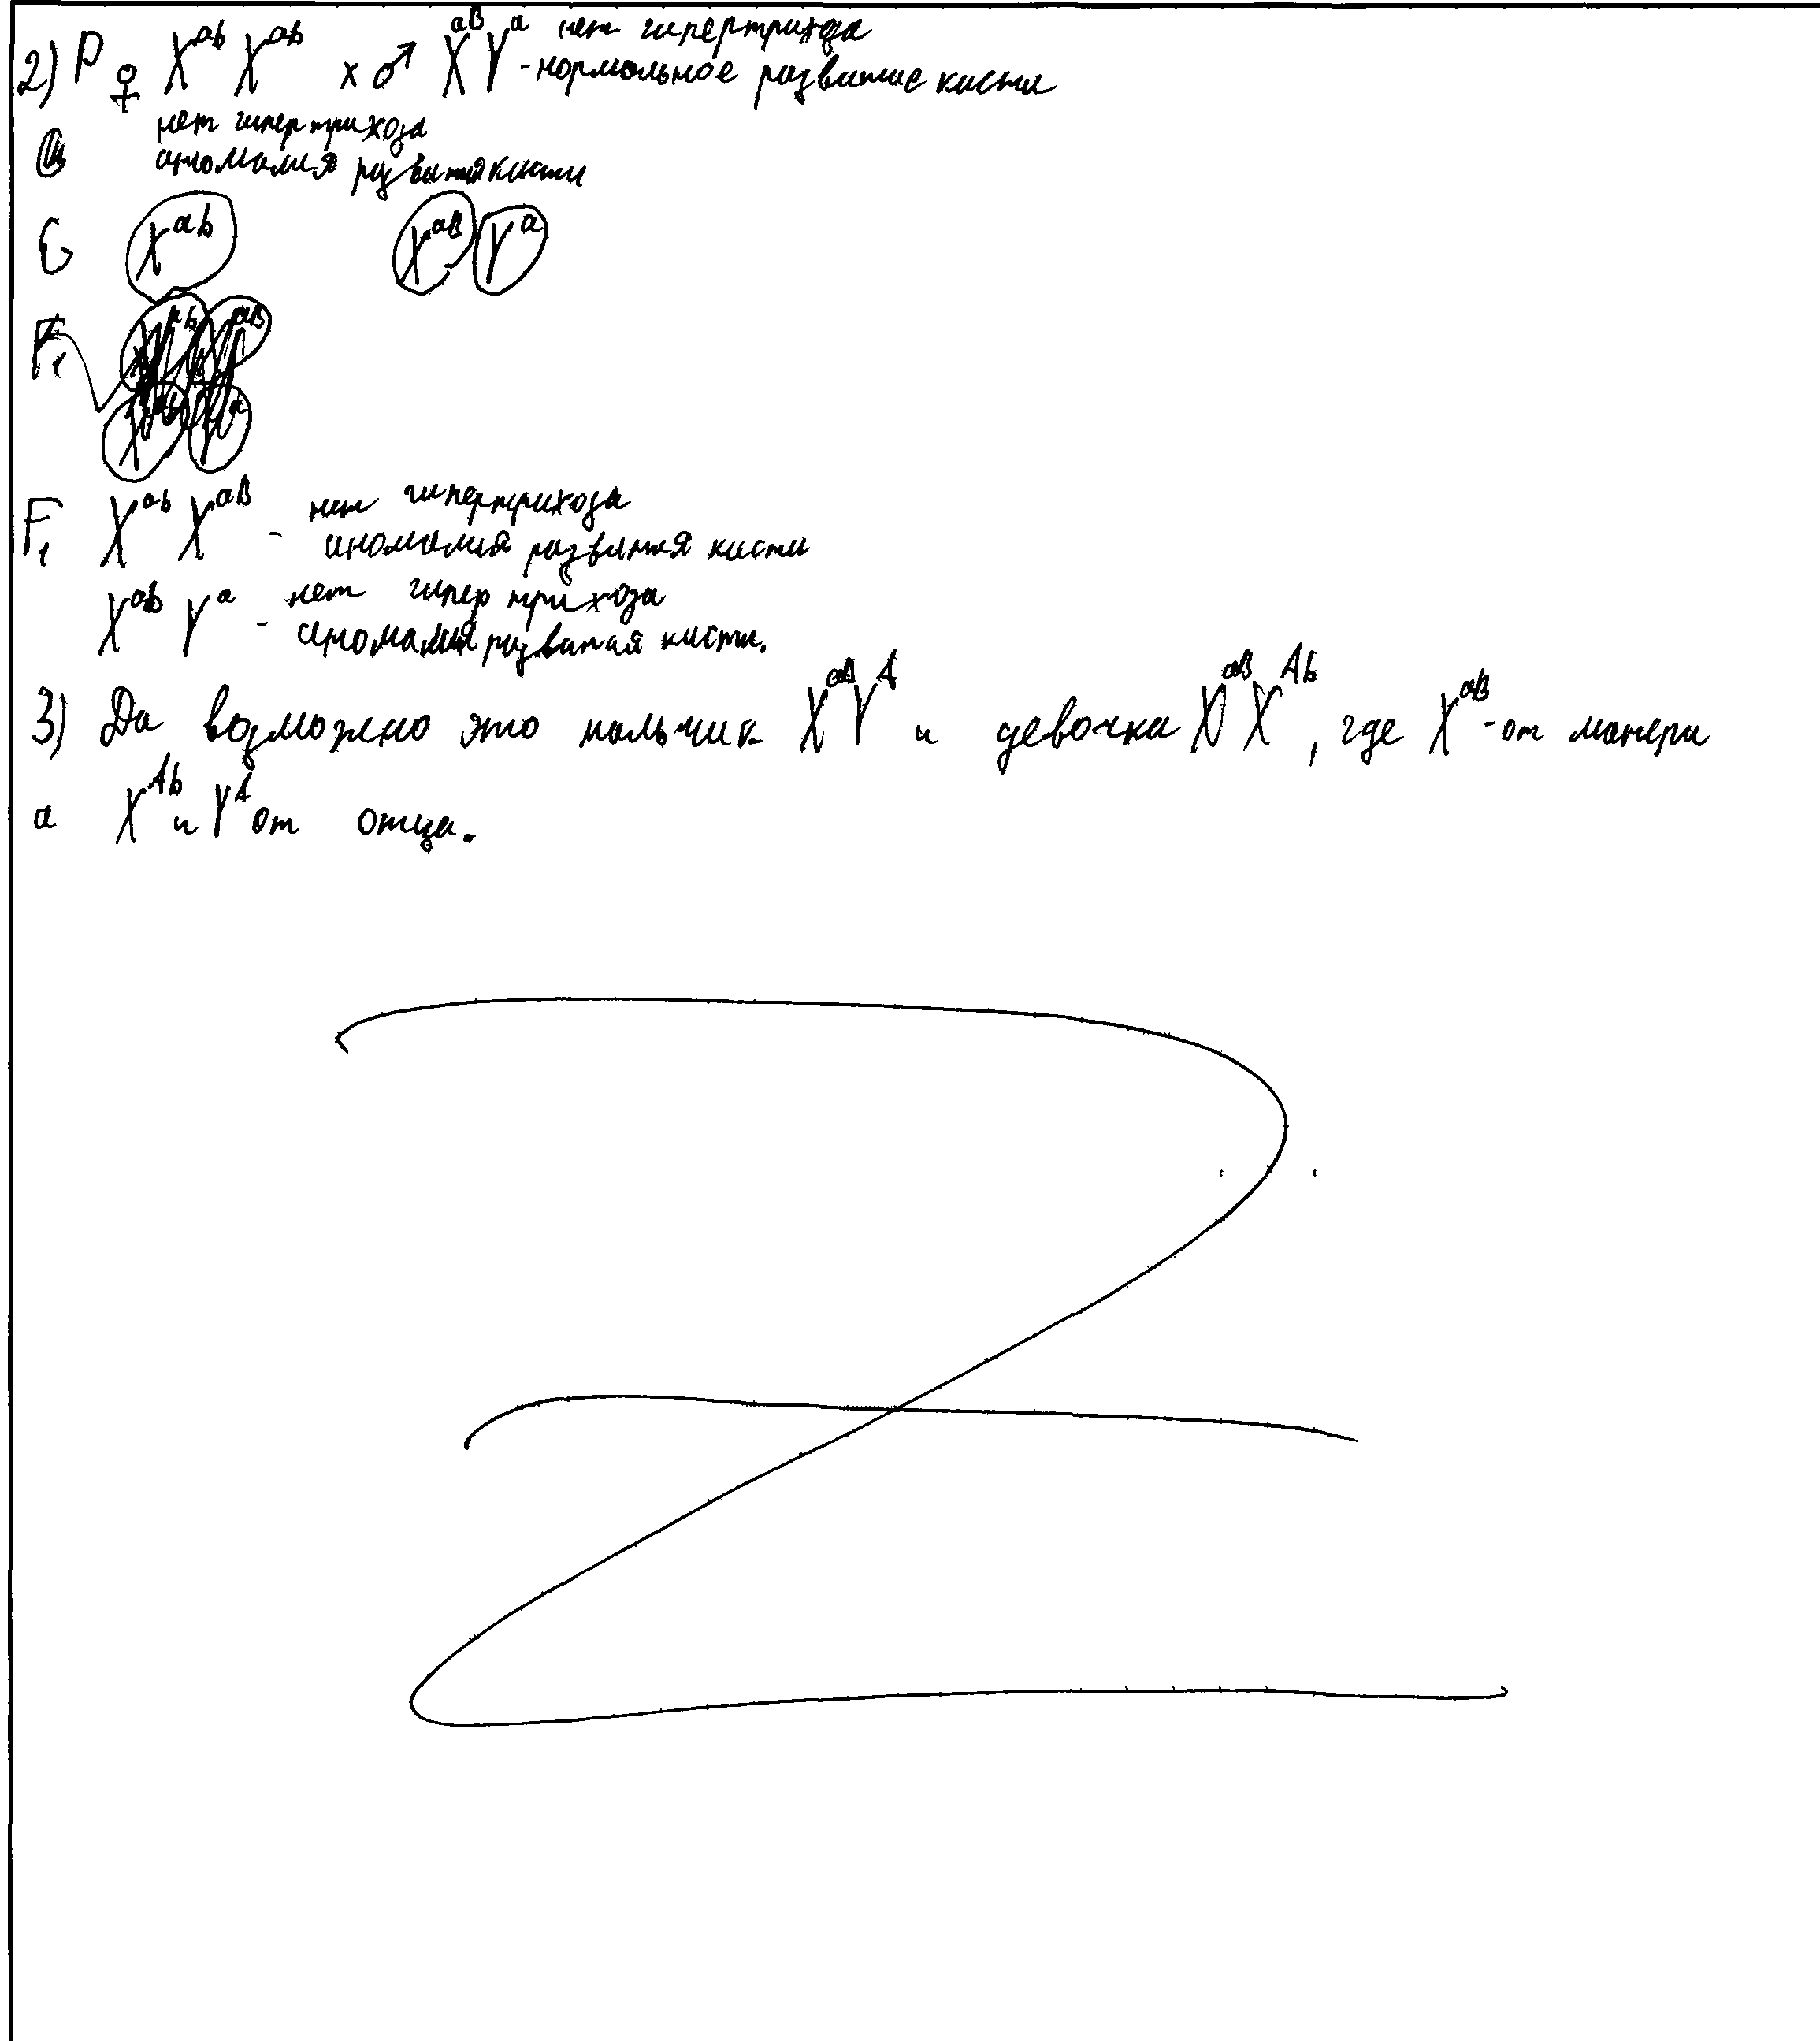 2) P ♀ X^ab X^ab x ♂ X^aB Y^a нет гипертрихоза
- нормальное развитие кисти
нет гипертрихоза
аномалия развития кисти
G X^ab X^aB Y^a
F₁
F₁ X^ab X^aB - нет гипертрихоза
аномалия развития кисти
X^ab Y^a - нет гипертрихоза
аномалия развития кисти.
3) Да возможно это мальчик X^aB Y^A и девочка X^aB X^Ab, где X^aB - от матери
а X^Ab и Y^A от отца.